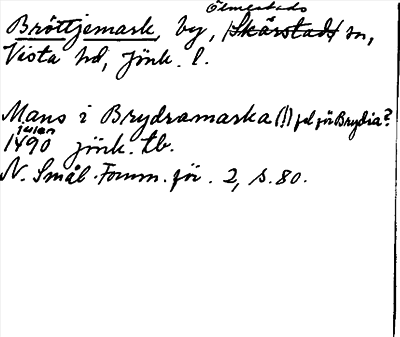 Ölmestads
Bröttjemark by, /Skärstads/ sn,
Vista hd, Jönk. l.
Mans i Brydramarka (!) fel för Brydia?
1490 julen jönk. tb.
N. Smål. Fornm. för. 2, s. 80.